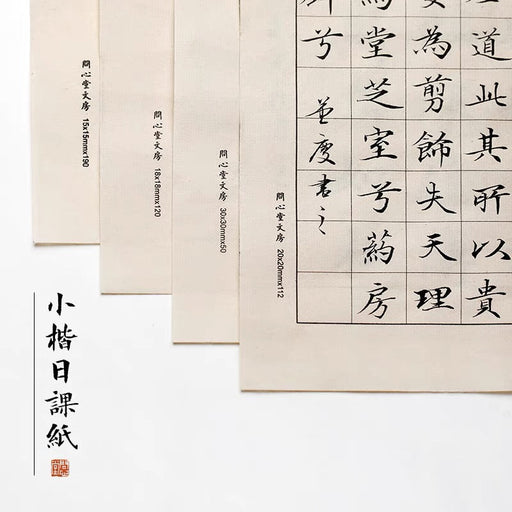 道此其所以貴
為剪飾失天理
堂芝室兮葯房
兮
並
書之
問心堂文房 20x20mmx112
問心堂文房 30x30mmx50
問心堂文房 18x18mmx120
問心堂文房 15x15mmx190
小楷日課紙